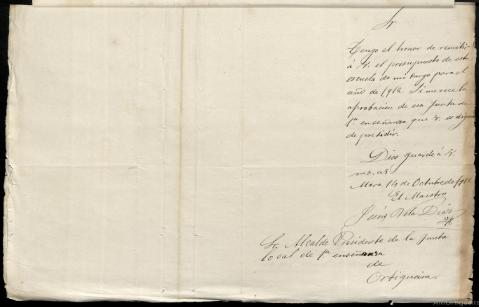 Sr
Tengo el honor de remitir
á V. el presupuesto de esta
escuela de mi cargo para el
año de 1912. Si merece la
aprobación de esa Junta de
1ª enseñanza que V. es digno
de presidir.
Dios guarde á V.
m. a.
Mera 14 de Octubre de 1911
El Maestro
Jesús Díaz
Sr. Alcalde Presidente de la Junta
local de 1ª enseñanza
de
Ortigueira